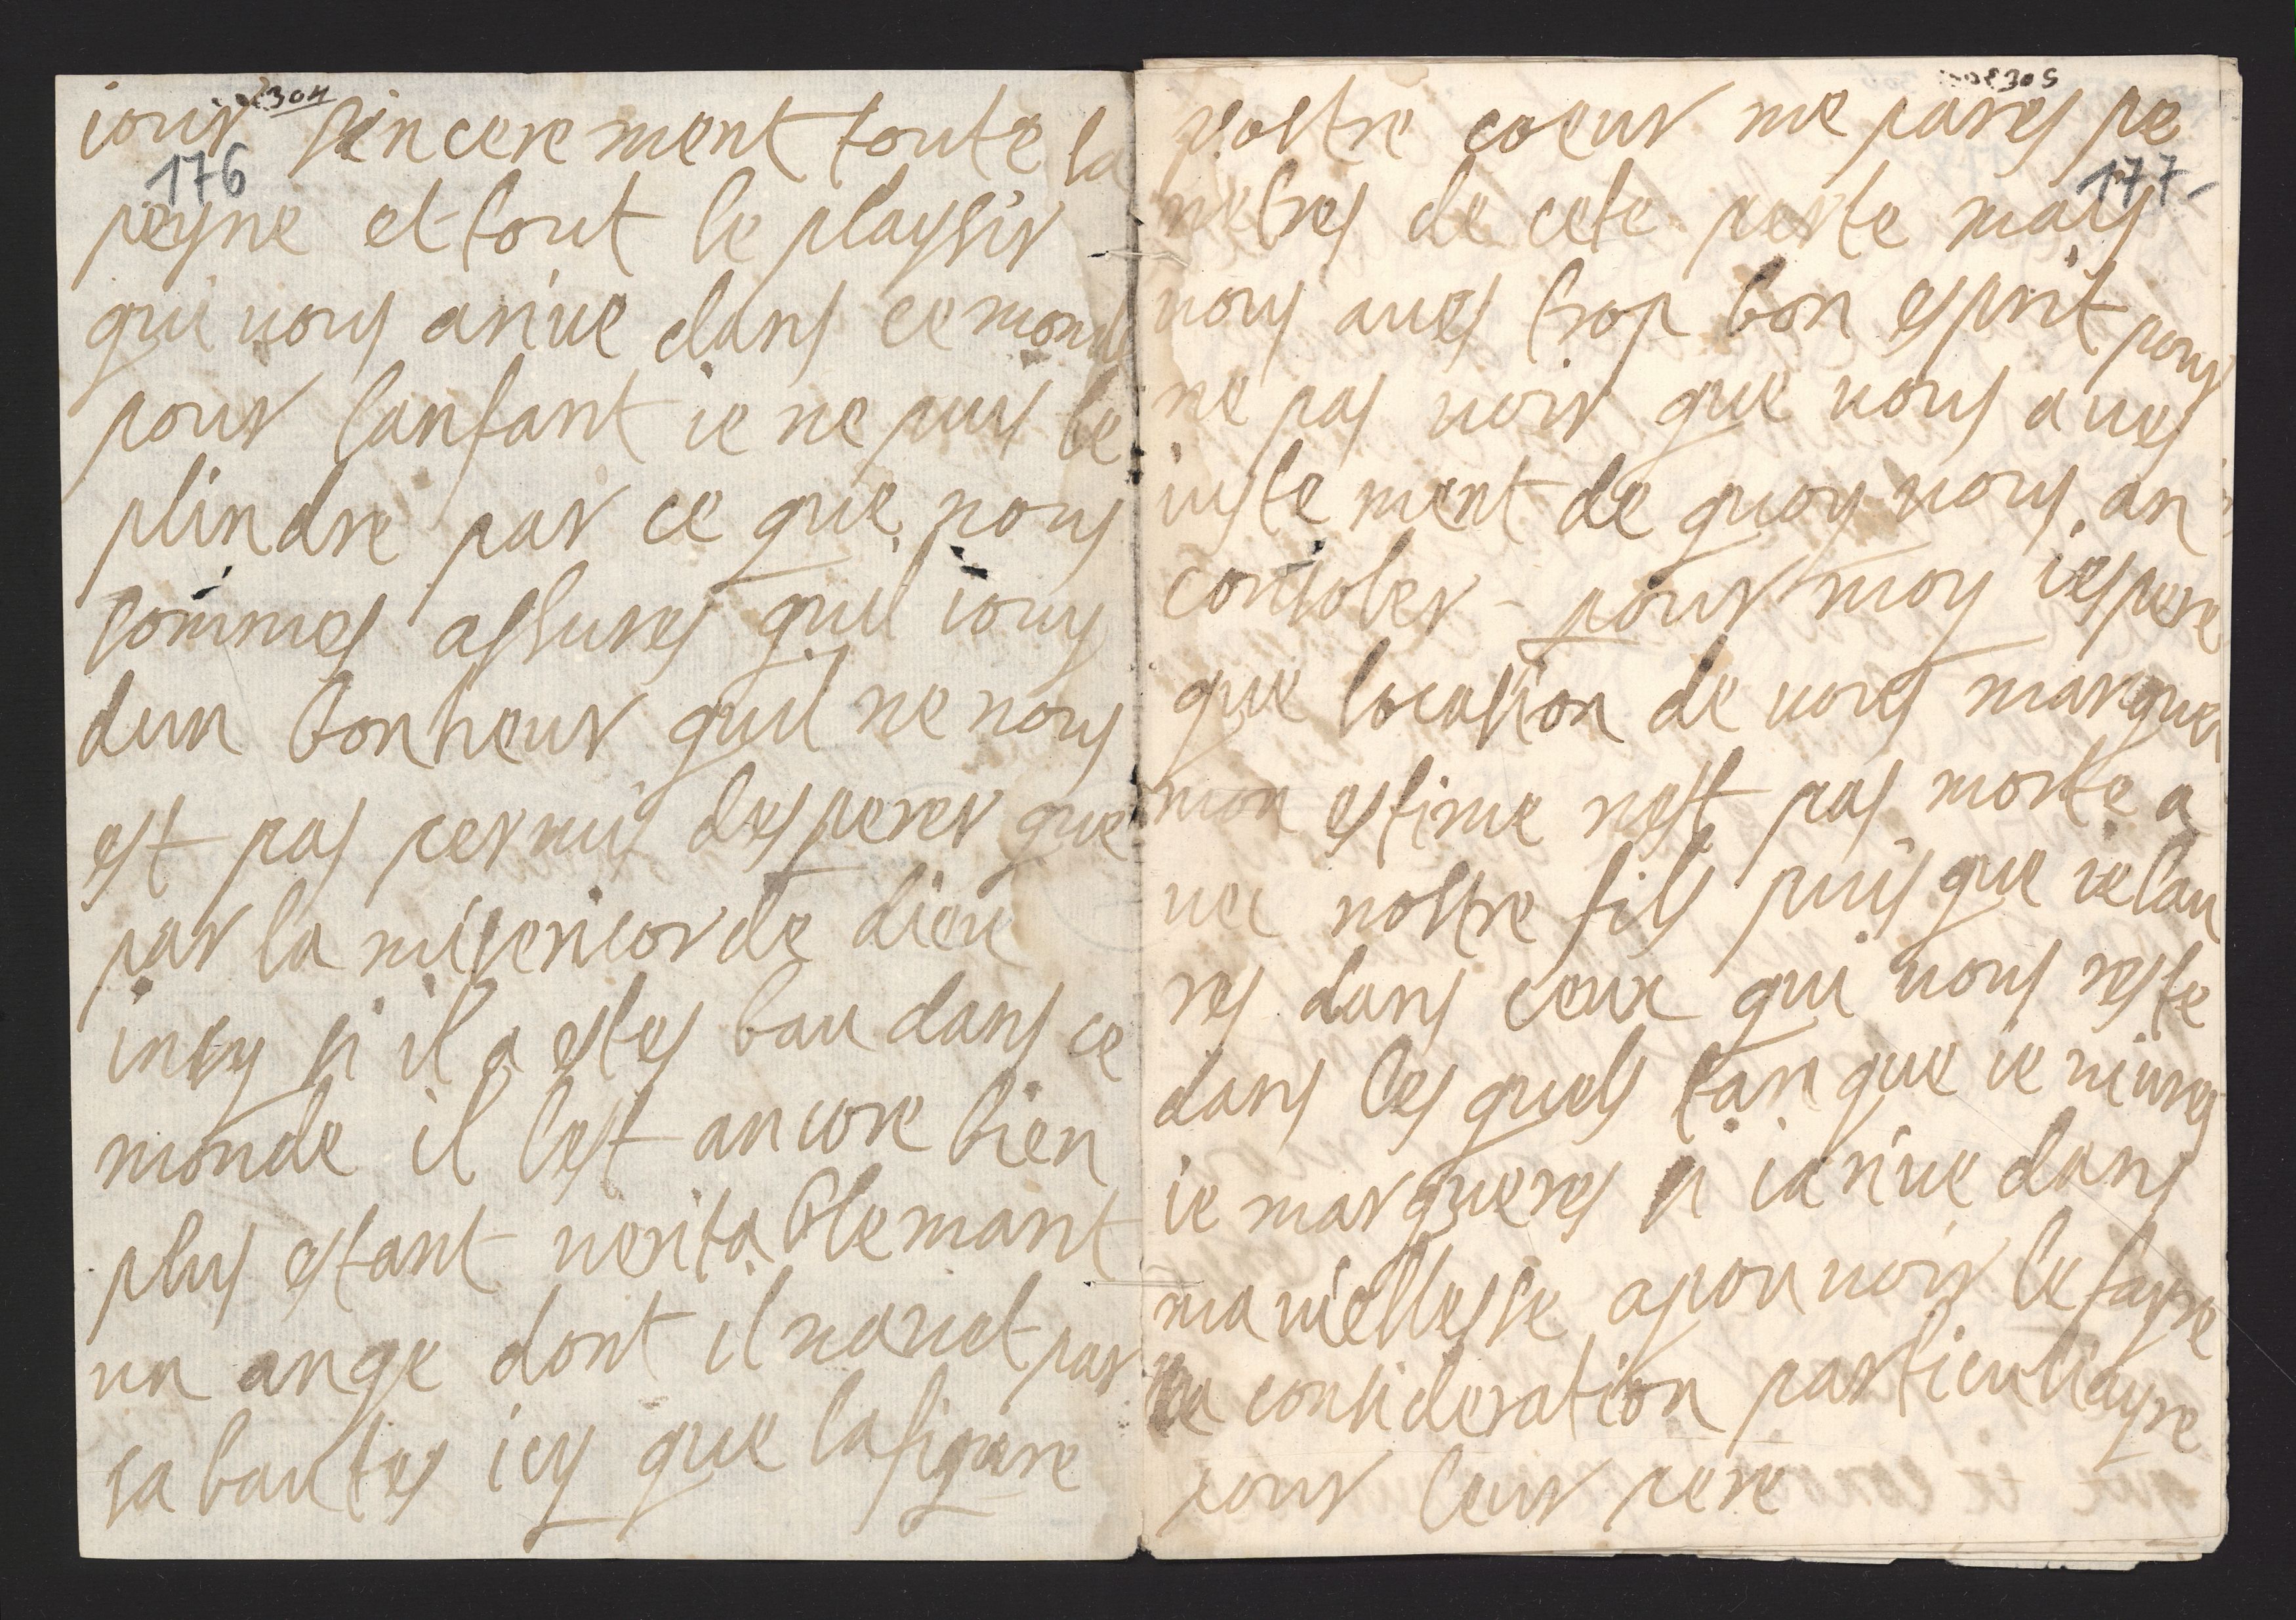 304
iour sincere ment toute la
176
peyne et tout le playsir
qui uous ariue dans ce monde
pour lanfant ie ne puis le
plindre par ce que nous
sommes assures quil iouy
dun bonheur quil ne nous
est pas permis desperer que
par la misericorde dieu
incy si il a estes bau dans ce
monde il lest ancore bien
plus estant verita blemant
un ange dont il nauet par
sa bautes icy que la figure
305
vostre coeur me pares pe
177
netres de cete perte mays
uous aues trop bon esprit pour
ne pas uoir que uous aues
iuste ment de quoy uous an
consoler - pour moy iespere
que locasion de uous marquer
mon estime nest pas morte a
uec nostre fils puis que ie lau
res dans ceux qui uous reste
dans les quels tan que ie uiures
ie marqueres si iariue dans
ma viellesse a pou uoir le fayre
consideration particuliayre
pour leur pere